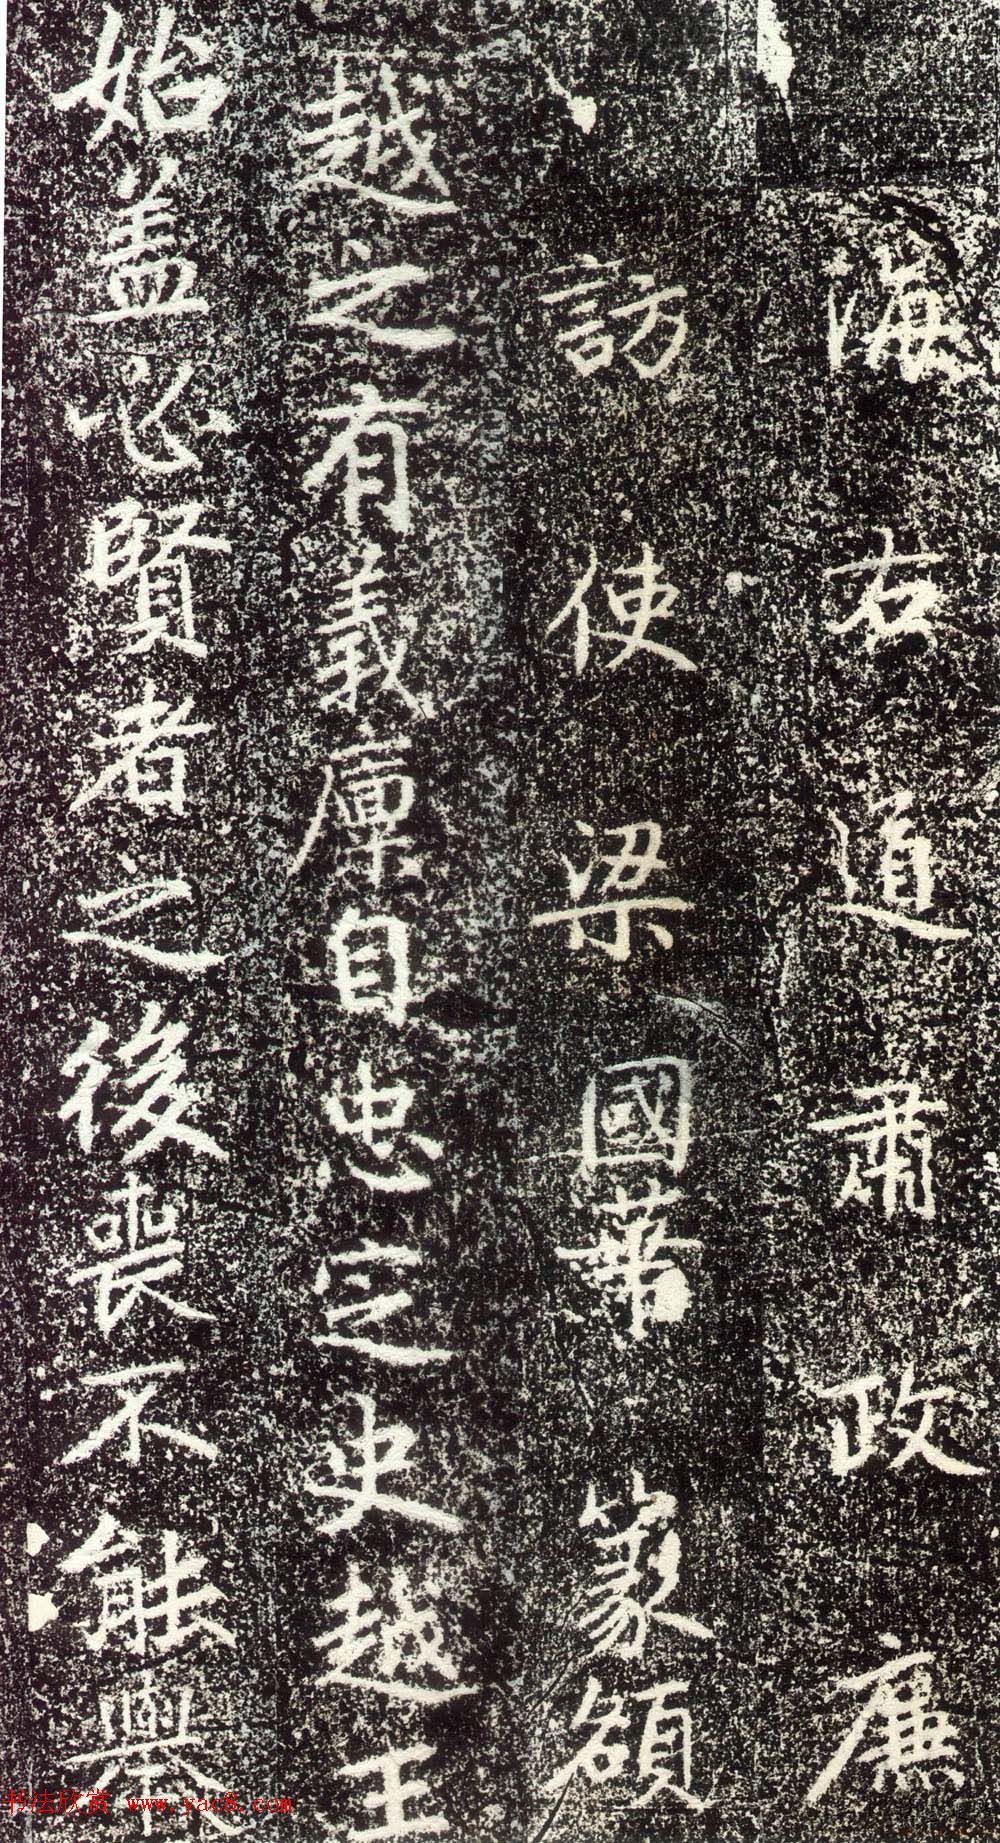 海右道肅政廉
訪使梁國華篆額
越之有義廩自忠定史越王
始蓋以賢者之後喪不能舉
书法欣赏 www.yac8.com